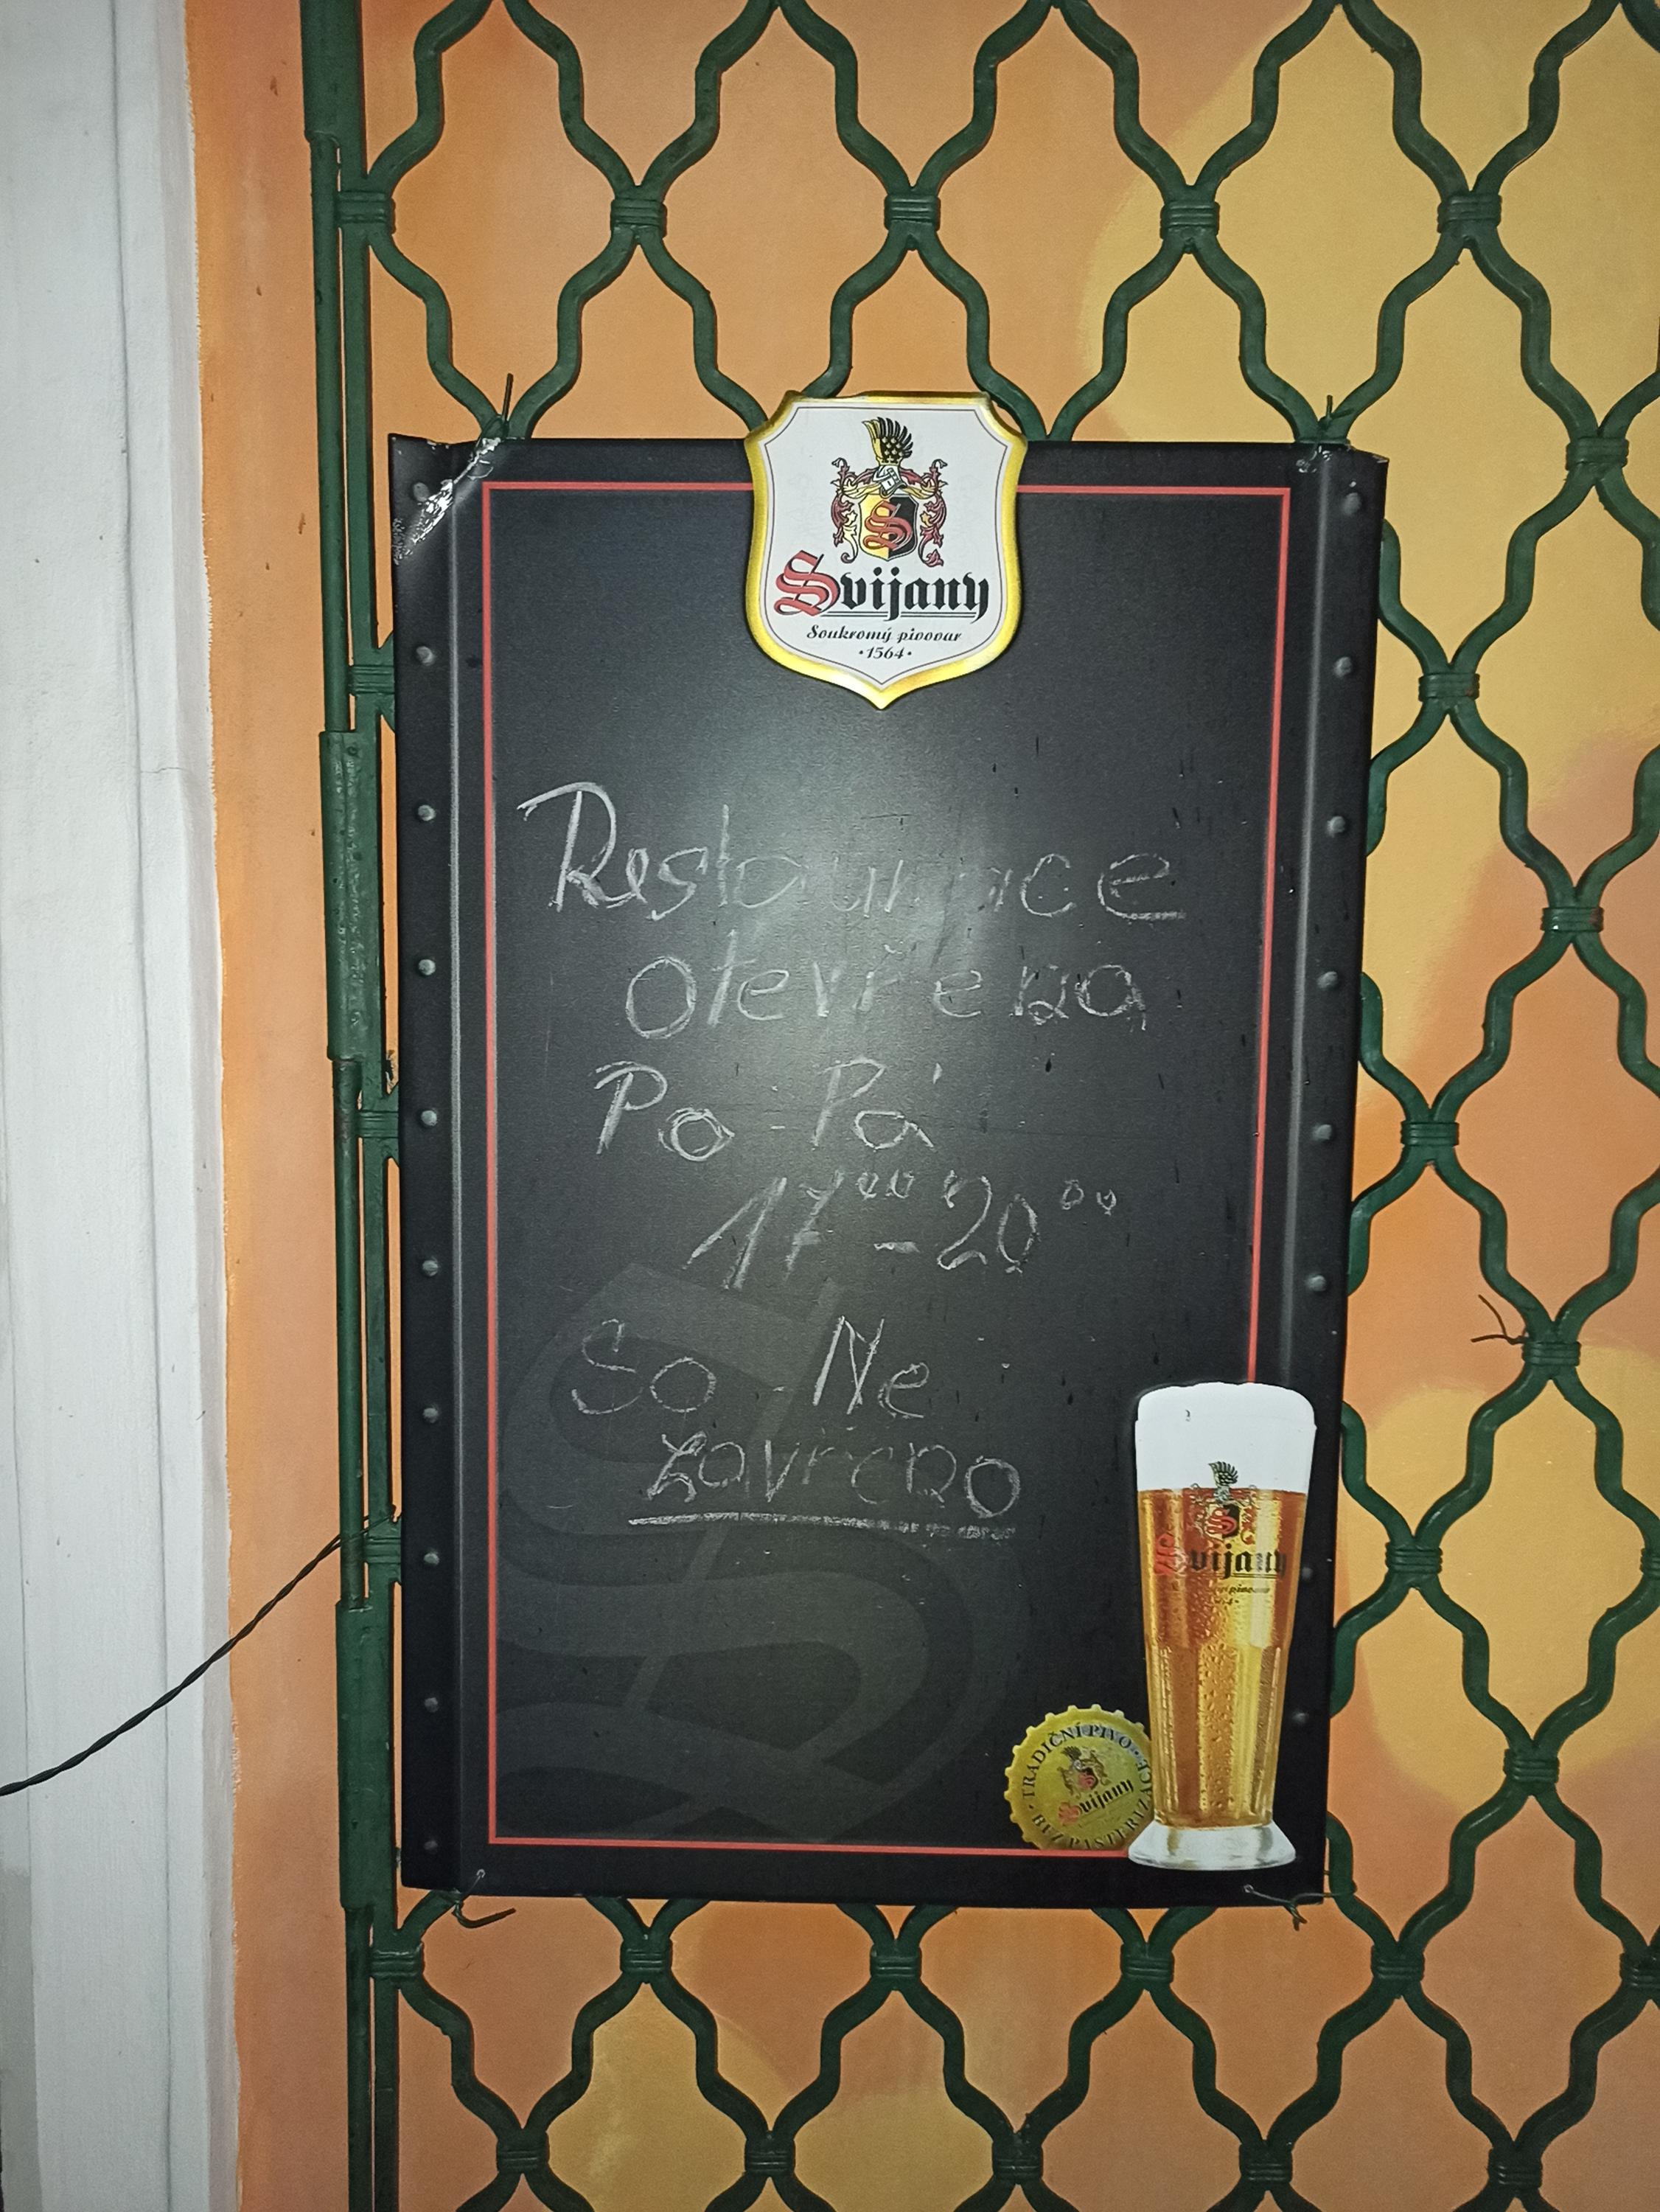 Svijany
Soukromý pivovar
·1564·
Restaurace
otevřena
Po - Pá
17⁰⁰ - 20⁰⁰
So - Ne
zavřeno
Svijany
pivovar
TRADIČNÍ PIVO
Svijany
BEZ PASTERIZACE